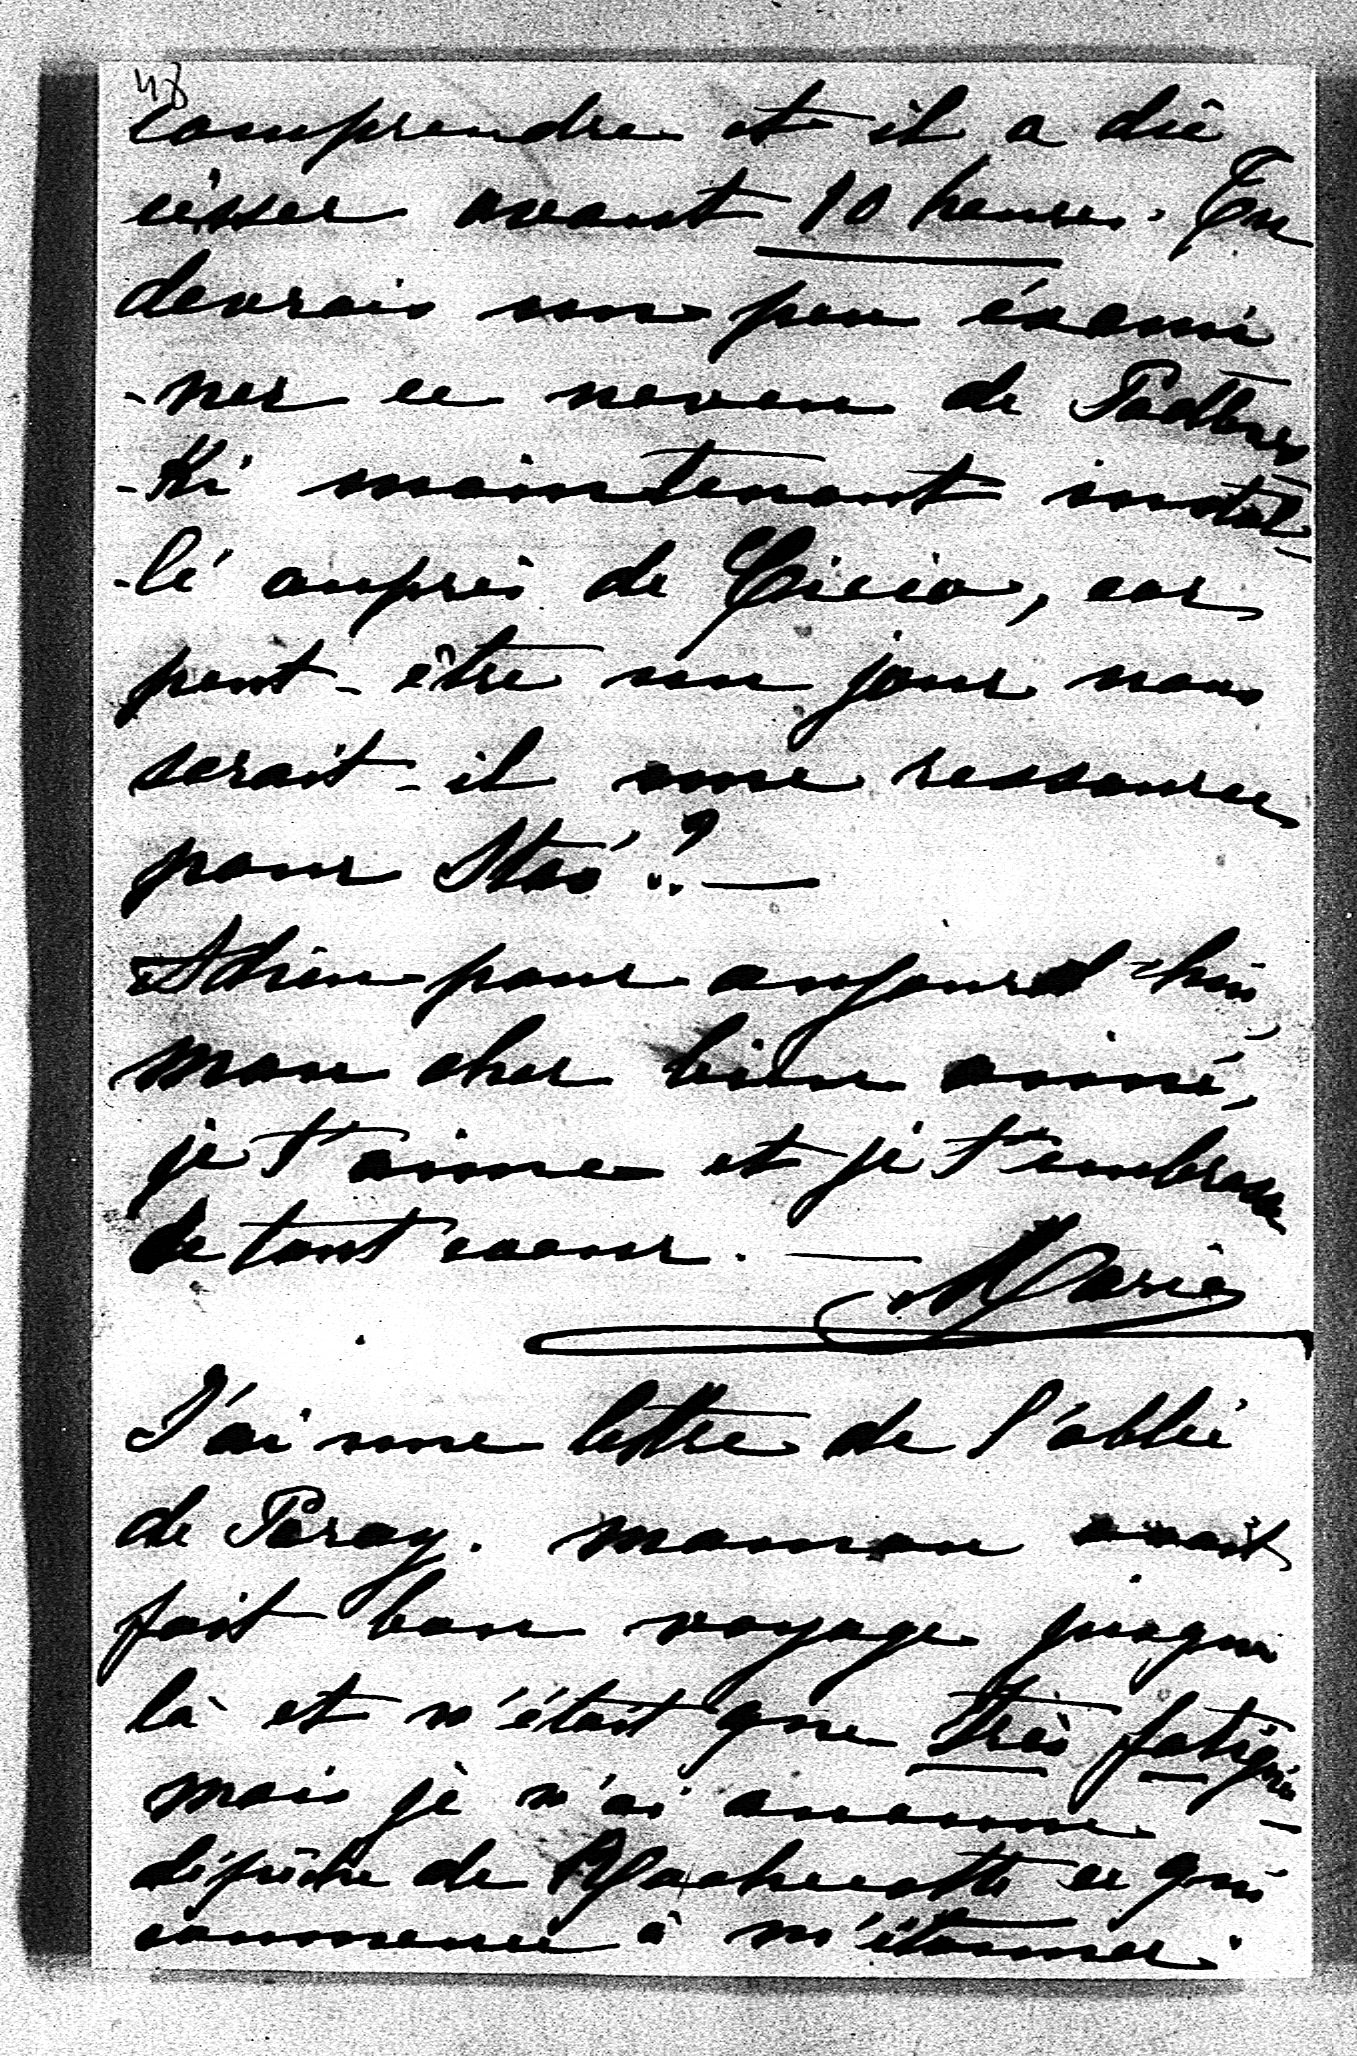 48
comprendre et il a dû
cesser avant 10 heures. Tu
devrais un peu éxami
-ner ce neveu de Podbers
-Ki maintenant instal
-lé auprès de Ciccio, car
peut-être un jour nous
serait-il une ressource
pour Stas? —
Adieu pour aujourd'hui,
mon cher bien aimé,
je t'aime et je t'embrasse
de tout coeur. — Marie
J'ai une lettre de l'abbé
de Paray. maman avait
fait bon voyage jusque
là et n'était que très fatiguée
mais je n'ai aucune
dépêche de ce qui
commence à m'étonner.